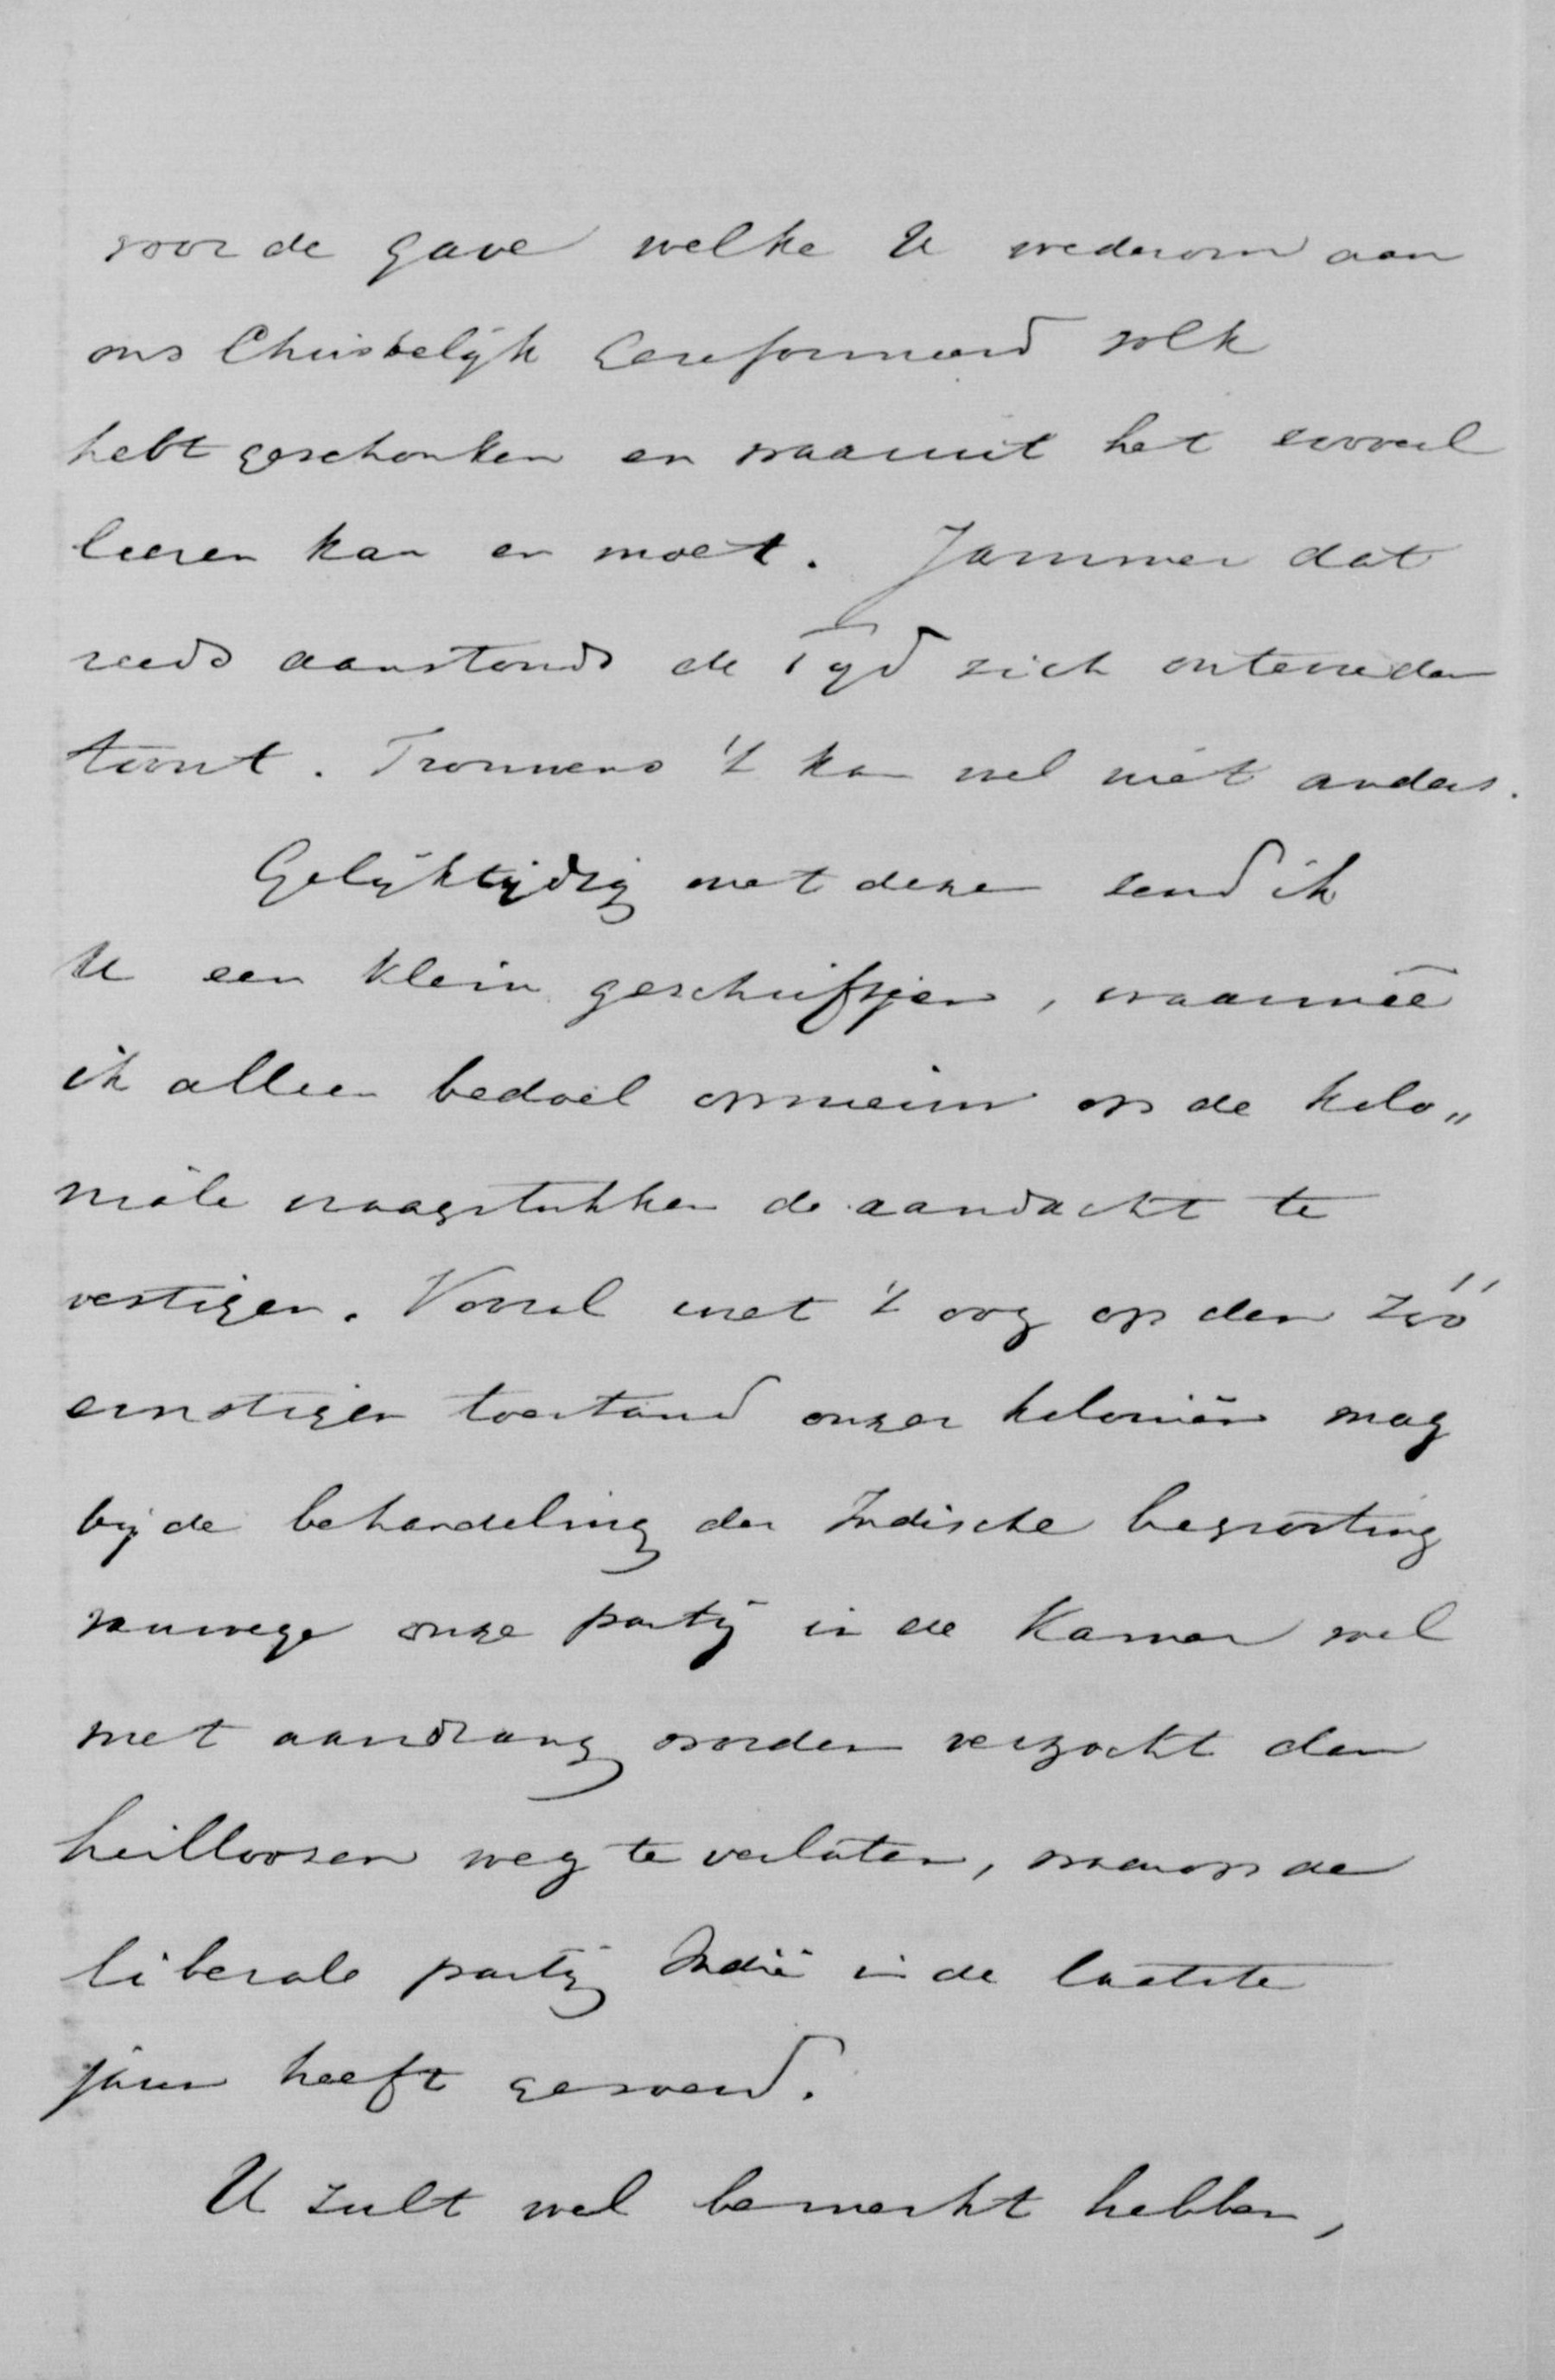 voor de gave welke U wederom aan
ons Christelijk Gereformeerd volk
hebt geschonken en waaruit het zooveel
leeren kan en moet. Jammer dat
reeds aanstonds de Tijd zich ontevreden
toont. Trouwens 't kan wel niet anders.
Gelijktijdig met deze zend ik
U een klein geschriftjen, waarmeê
ik alleen bedoel opnieuw op de kolo„
niale vraagstukken de aandacht te
vestigen. Vooral met 't oog op den zóó
ernstigen toestand onzer koloniën mag
bij de behandeling der Indische begrooting
vanwege onze partij in de Kamer wel
met aandrang worden verzocht den
heilloozen weg te verlaten, waarop de
liberale partij Indië in de laatste
jaren heeft gevoerd.
U zult wel bemerkt hebben,